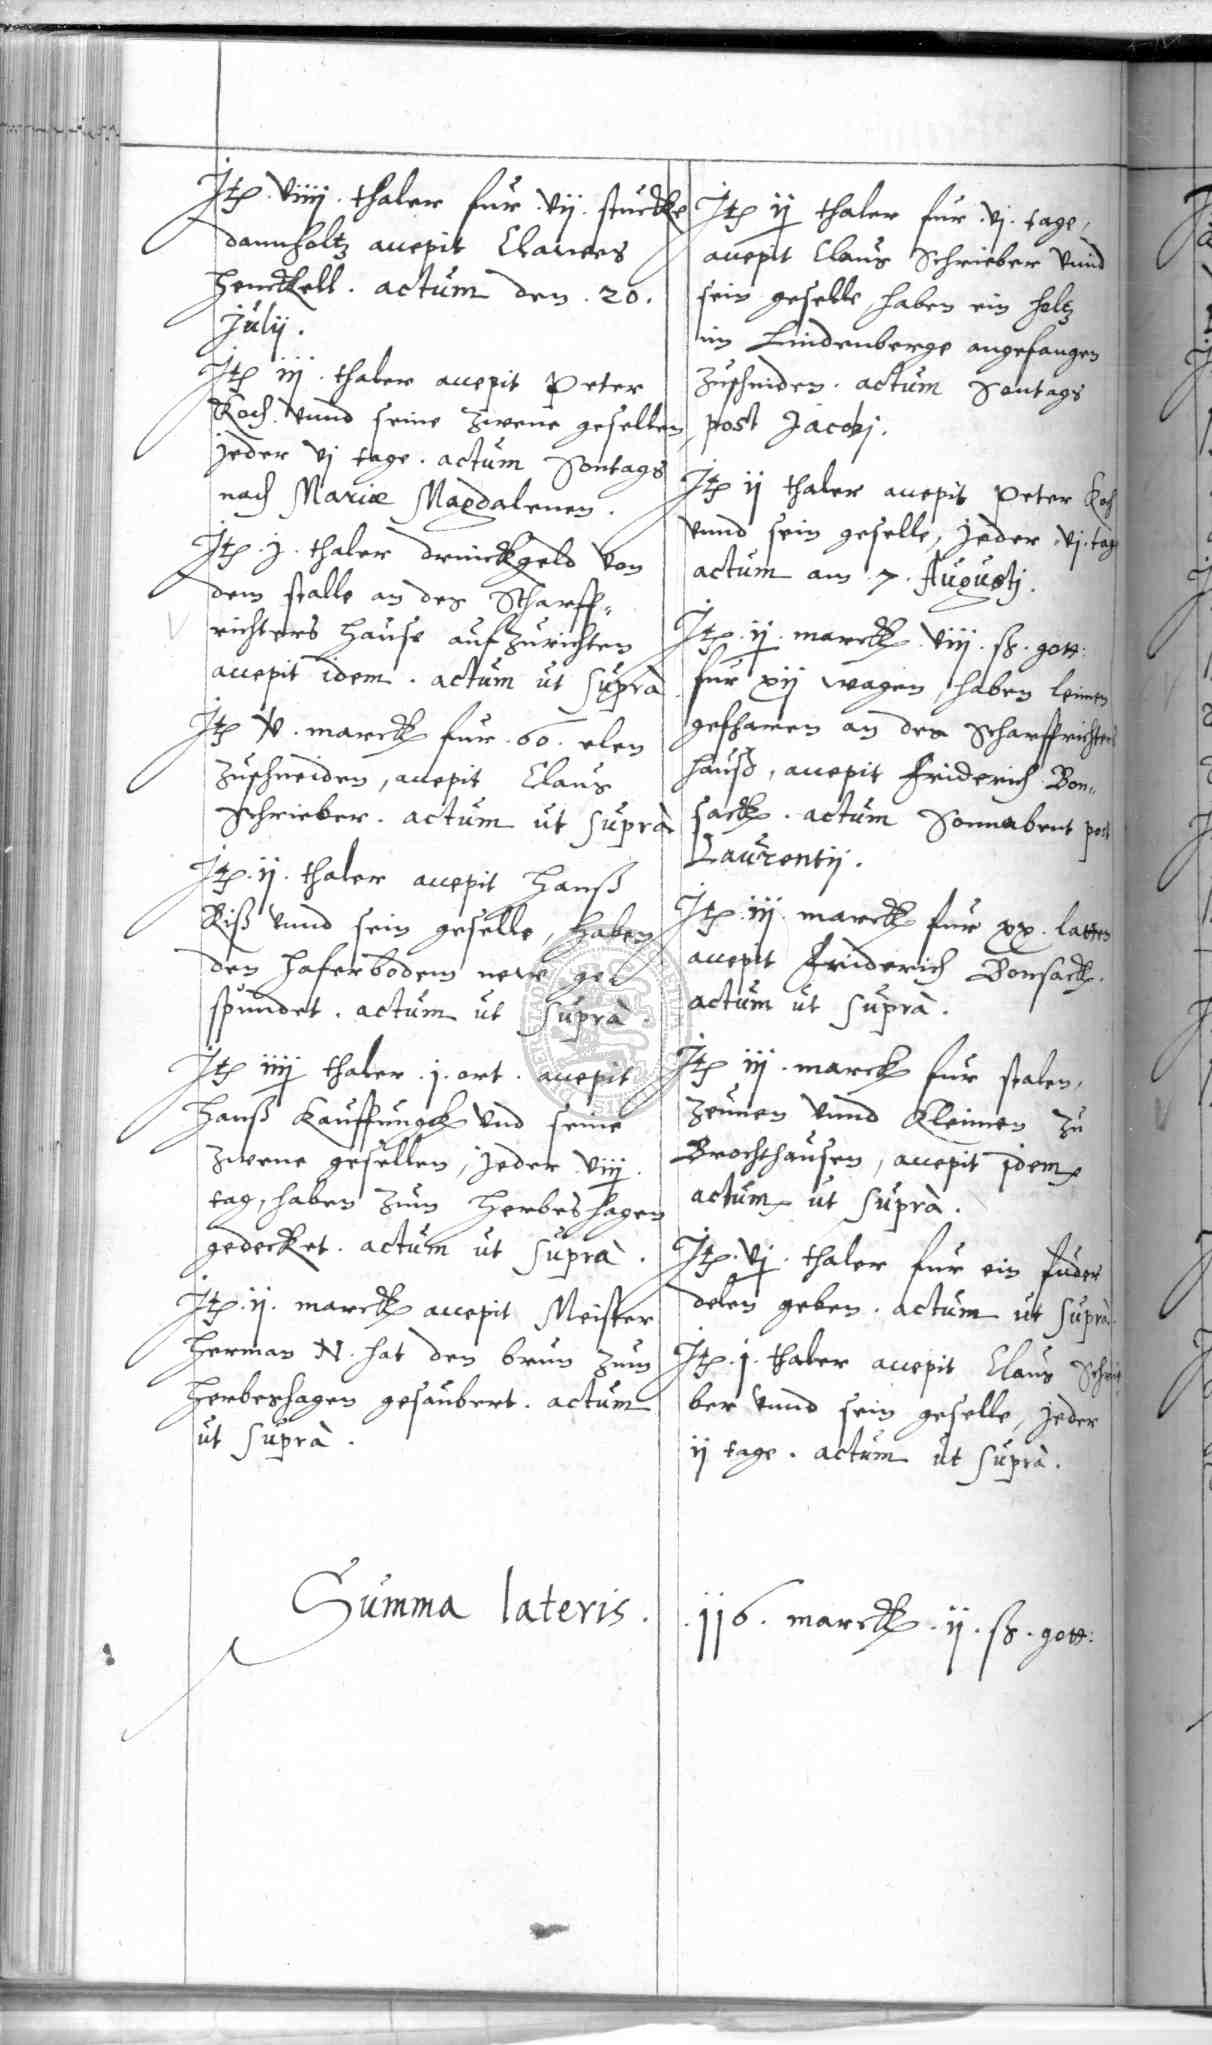 Itē. viiij. thaler fur. vij. stuckke
dannholtz accepit Clawes
Henckell. actum den. 20.
Julij.
Itē iij. thaler accepit Peter
Koch. vnnd seine zwene gesellen,
jeder vj tage. actum Sontags
nach Mariæ Magdalenen.
Itē. j. thaler drinckgeld von
dem stalle an des Scharff„
richters hause auffzurichten
accepit idem. actum ut suprà.
Itē V. marck fur. 60. elen
zuschneiden, accepit Claus
Schrieber. actum ut suprà
Itē. ij. thaler accepit Hanß
Riß vnnd sein geselle, haben
den haferbodem new ge„
spundet. actum ut suprà.
Itē iiij thaler. j. ort. accepit
Hanß Kauffungck vnd seine
zwene gesellen, jeder viij.
tag, haben zum Herbeshagen
gedecket. actum ut suprà.
Itē. ij. marck accepit Meister
Herman N. hat den brun zum
Herbeshagen gesaubert. actum
ut suprà.
Itē ij thaler fur. vj. tage,
accepit Claus Schrieber vnnd
sein geselle, haben ein holtz
im Lindenberge angefangen
zuschniden. actum Sontags
post Jacobj.
Itē ij thaler accepit Peter Koch
vnnd sein geselle, jeder. vj. tag
actum am. 7. Augustj.
Itē. ij. marck. viij. ß. gott:
fur xij wagen, haben leimen
gefharen an des Scharffrichters
hauß, accepit Friderich Bon„
sack. actum Sonnabent post
Laurentij.
Itē. iij. marck fur xx. latten
accepit Friderich Bonsack.
actum ut suprà.
Itē iij. marck fur stalen,
zeunen vnnd kleimen zu
Brochthausen, accepit idem
actum ut suprà.
Itē. vj. thaler fur ein fuder
delen geben. actum ut suprà.
Itē. j. thaler accepit Claus Schrie
ber vnnd sein geselle, jeder
ij tage. actum ut suprà.
Summa lateris. jj6. marck. ij. ß. gott: